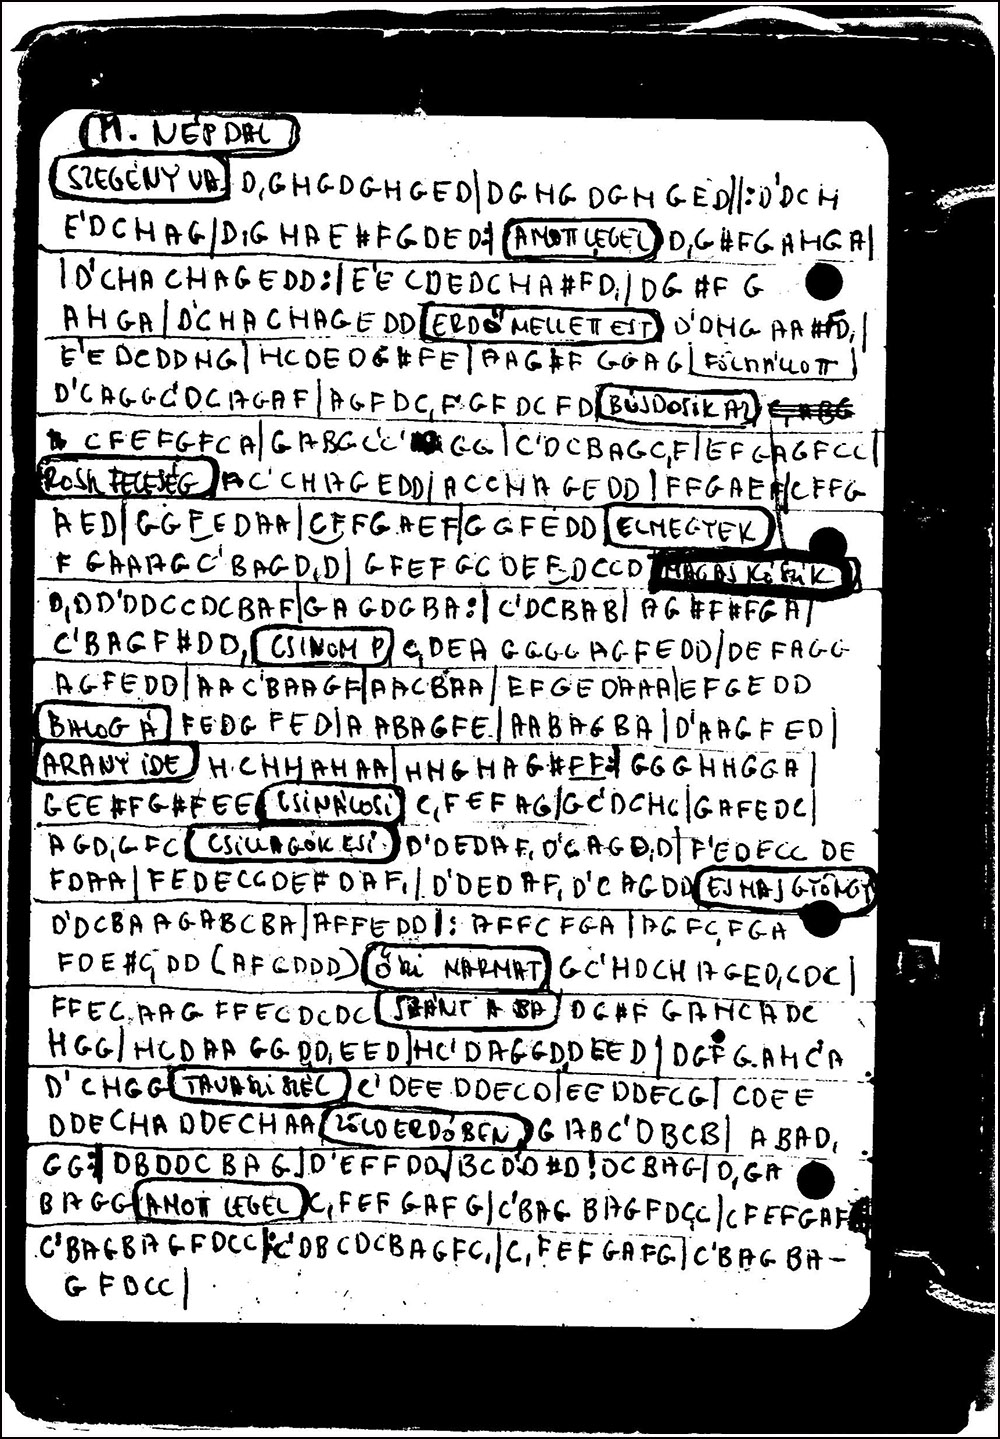 M. NÉPDAL
SZEGÉNY VA. D,GHGDGHGED|DGHG DGHGED||:D'DCH
E'DCHAG|D,GHAE#FGDED:| AMOTT LEGEL D,G#FGAHGA|
|D'CHACHAGEDD:|E'ECDEDCHA#FD,|DG#FG
AHGA|D'CHACHAGEDD ERDŐ MELLETT EST D'DHGAA#FD,|
E'EDCDDHG|HCDEDG#FE|AAG#FGGAG| FÖLMÁLLOTT
D'CAGGC'DCAGAF|AGFDC,FGFDCFD BÚJDOSIK AZ
CFEFGFCA|GABGCC' GG|C'DCBAGC,F|EFGAGFCC|
ROSSZ FELESÉG AC'CHAGEDD|ACCHAGEDD|FFGAEF|CFFG
AED|GGFEDAA|CFFGAEF|GGFEDD ELMEGYEK
FGAAAGC'BAGD,D|GFEFGCDEFDCCD MAGAS KŐSZIK
D,DD'DDCCDCBAF|GAGDGBA:|C'DCBAB|AG#F#FGA|
C'BAGF#DD, CSINOM P C,DEAGGGGAGFEDD|DEFAGG
AGFEDD|AAC'BAAGF|AACBAA|EFGEDAAA|EFGEDD
BALOG Á FEDGFED|AABAGFE|AABAGBA|D'AAGFED|
ARANY IDE HCHHAHAA|HHGHAG#FF:|GGGHHGGA|
GEE#FG#FEE CSINÁLOSI C,FEFAG|GC'DCHC|GAFEDC|
AGD,GFC CSILLAGOK ESI. D'DEDAF,D'CAGD,D|F'EDECC DE
FDAA|FEDECCDEFDAF,|D'DEDAF,D'CAGDD EJ HAJ GYÖNGY
D'DCBAAGABCBA|AFFEDD|:AFFCFGA|AGFC,FGA
FDE#C,DD (AFGDDD) ŐSZI HARMAT GC'HDCHAGED,CDC|
FFEC,AAG FFECDCDC SZÁNT A BA DG#FGAHCADC
HGG|HCDAAGGDD,EED|HC'DAGGDDEED|DGFG.AHC'A
D'CHGG TAVASZI SZÉL C'DEEDDECD|EEDDECG|CDEE
DDECHADDECHAA ZÖLD ERDŐBEN GABC'DBCB|ABAD,
GG:|DBDDCBAG|D'EFFDD|BCD'D#D!DCBAG|D,GA
BAGG AMOTT LEGEL C,FEFGAFG|C'BAGBAGFDCC|CFEFGAF
C'BAGBAGFDCC|:C'DBCDCBAGFC,|C,FEFGAFG|C'BAGBA-
GFDCC|